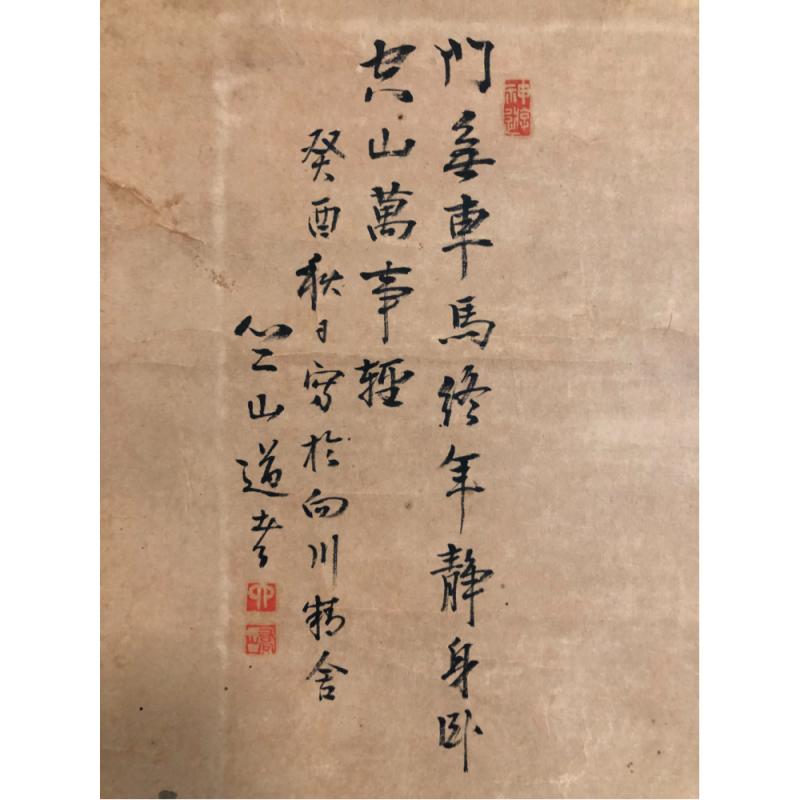 門無車馬終年靜身臥
空山萬事輕
癸酉秋日寫於向川精舍
竺山道者